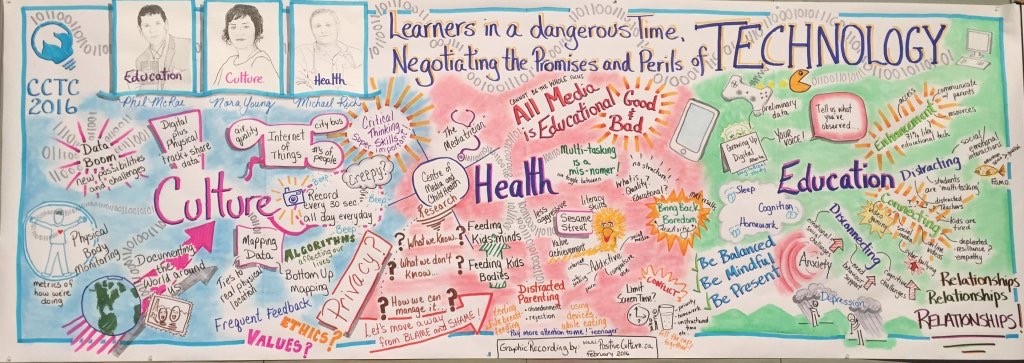 CCTC
2016
Education
Phil McRae
Culture
Nora Young
Health
Michael Rich
Learners in a dangerous Time.
Negotiating the Promises and Perils of
TECHNOLOGY
Data
Boom
new possibilities
and challenges
Digital
plus
track, share
as data
air
quality
Internet
of
Things
city bus
#'s of
people
Critical
Thinking
Skills
Creepy?
Culture
Beep
Beep
Beep
Record
every 30 sec
all day everyday
Physical
Body
Monitoring
metrics
of how we're
doing
Documenting
the
World
around
us
Mapping
Data
Ties to
real physical
location
ALGORITHMS
affecting our
lives
Bottom Up
Mapping
Frequent Feedback
VALUES?
ETHICS?
Privacy?
The
Mediatrician
Centre of
Media and
Child Health
Research
Health
? What we Know.
? What we don't
Know...
? How we can
manage it...
Let's move away
from BLAME and SHAME!
Feeding
Kids Minds
Feeding Kids
Bodies
CANNOT BE THE WHOLE FOCUS
All Media
is Educational
Good
&
Bad
Multi-tasking
is a
mis-nomer
no distractions
What is
Quality
Educational?
less
aggressive
literacy
Sesame
Street
value
achievement
Addictive
Bring Back
Boredom
Distracted
Parenting
- abandonment
- rejection
using
devices
while eating
Pay more attention to me! -Teenager
Limit
Screen Time?
CONFLICT
homework
instructional time
Graphic Recording by: www.PositiveCulture.ca
February 2016
preliminary
data
YOUR
VOICE!
Growing Up
Digital
Tell us what
you've
observed...
Education
access
communicate
parents
resources
Enhancement
Distracting
social/
emotional
interactions
Fomo
students
are "multi-tasking"
distracted
Teachers
Connecting
Kids are
tired
depleted
resilience
empathy
Sleep
Cognition
Homework
Disconnecting
Be Balanced
Be Mindful
Be Present
Anxiety
Depression
challenges
Relationships
Relationships
RELATIONSHIPS!